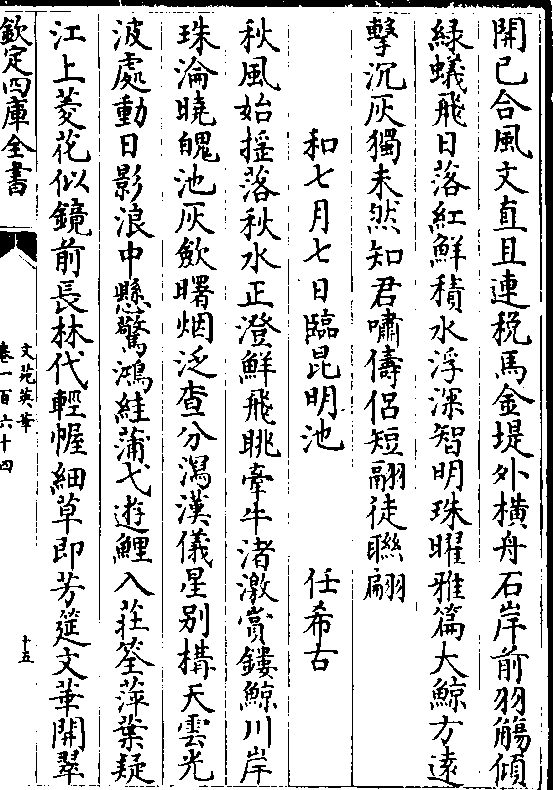 開已合風文直且連稅馬金堤外横舟石岸前羽觴傾
緑蟻飛日落紅鮮積水浮深智明珠曜雅篇大鯨方逺
擊沉灰獨未然知君嘯儔侣短翮徒聯翩
和七月七日臨昆明池 任希古
秋風始揺落秋水正澄鮮飛眺牽牛渚激賞鏤鯨川岸
珠淪曉魄池灰歛曙烟泛查分瀉漢儀星别構天雲光
波處動日影浪中懸驚鴻絓蒲弋逰鯉入莊筌萍葉疑
江上菱花似鏡前長林代輕幄細草即芳筵文華開翠
欽定四庫全書
文苑英華
卷一百六十四
十五